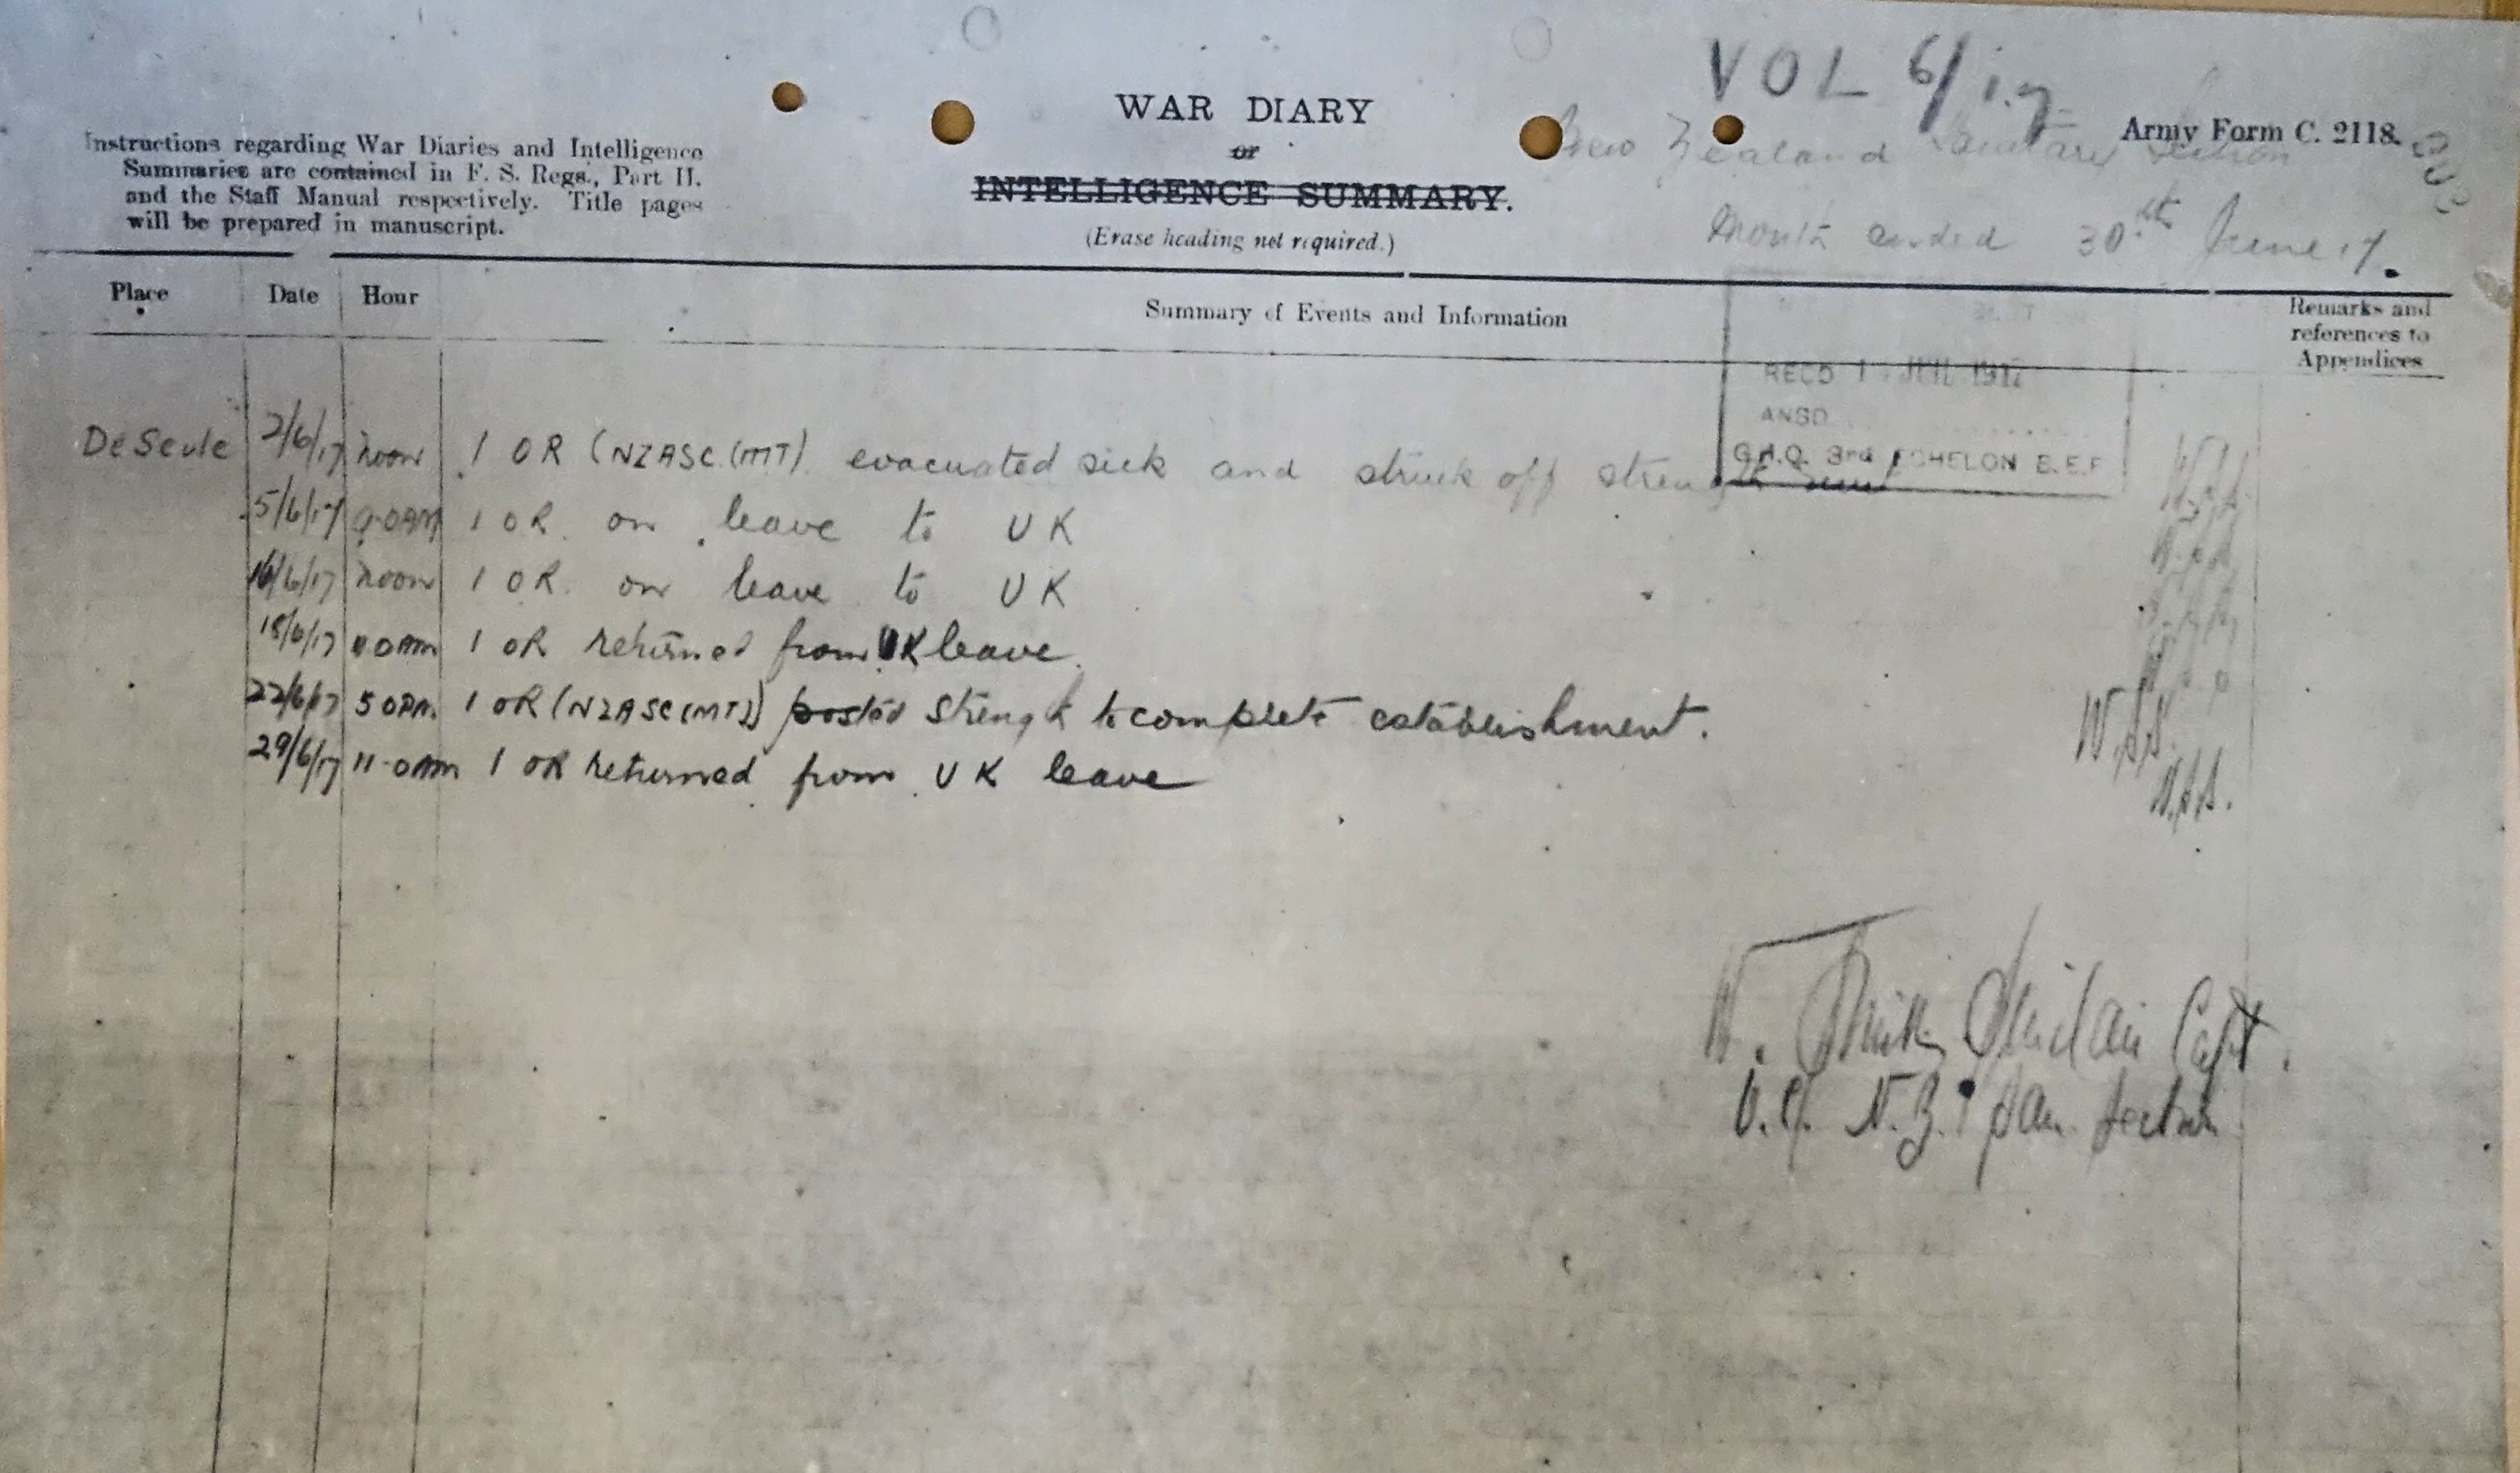 VOL 6/17
WAR DIARY
or
INTELLIGENCE SUMMARY.
(Erase heading not required.)
Instructions regarding War Diaries and Intelligence
Summaries are contained in F. S. Regs., Part II.
and the Staff Manual respectively. Title pages
will be prepared in manuscript.
Army Form C. 2118.
New Zealand Sanitary Section
Month ended 30th June 17.
Place Date Hour Summary of Events and Information Remarks and
references to
Appendices
RECD 1 JUL 1917
ANSD
G.H.Q. 3rd ECHELON B.E.F
De Seule 2/6/17 noon 1 OR (NZASC (MT) evacuated sick and struck off strength
5/6/17 9.0AM 1 OR on leave to UK
16/6/17 noon 1 OR on leave to UK
18/6/17 11 0AM 1 OR returned from UK leave.
22/6/17 5 0PM. 1 OR (NZASC (MT)) posted strength to complete establishment.
29/6/17 11-0AM 1 OR returned from UK leave
Capt.
O.C. N.Z. San Section